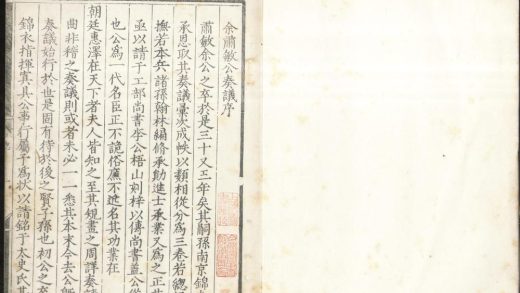 余肅敏公奏議序
肅敏余公之卒於是三十又五年矣其嗣孫南京錦
承恩取其奏議彙次成帙以類相從分爲三卷若總
撫若本兵諸孫翰林編修承勛進士承業又爲之正
亟以請于工部尚書李公梧山刻梓以傳尚書蓋公
也公爲一代名臣正不詭俗廉不近名其功業在
朝廷惠澤在天下者夫人皆知之至其規畫之周詳
曲非稽之奏議則或者未必一一悉其本末今去公
奏議始行於世是固有待於後之賢子孫也初公之卒
錦衣指揮寘具公事行屬予爲狀以請銘于太史氏